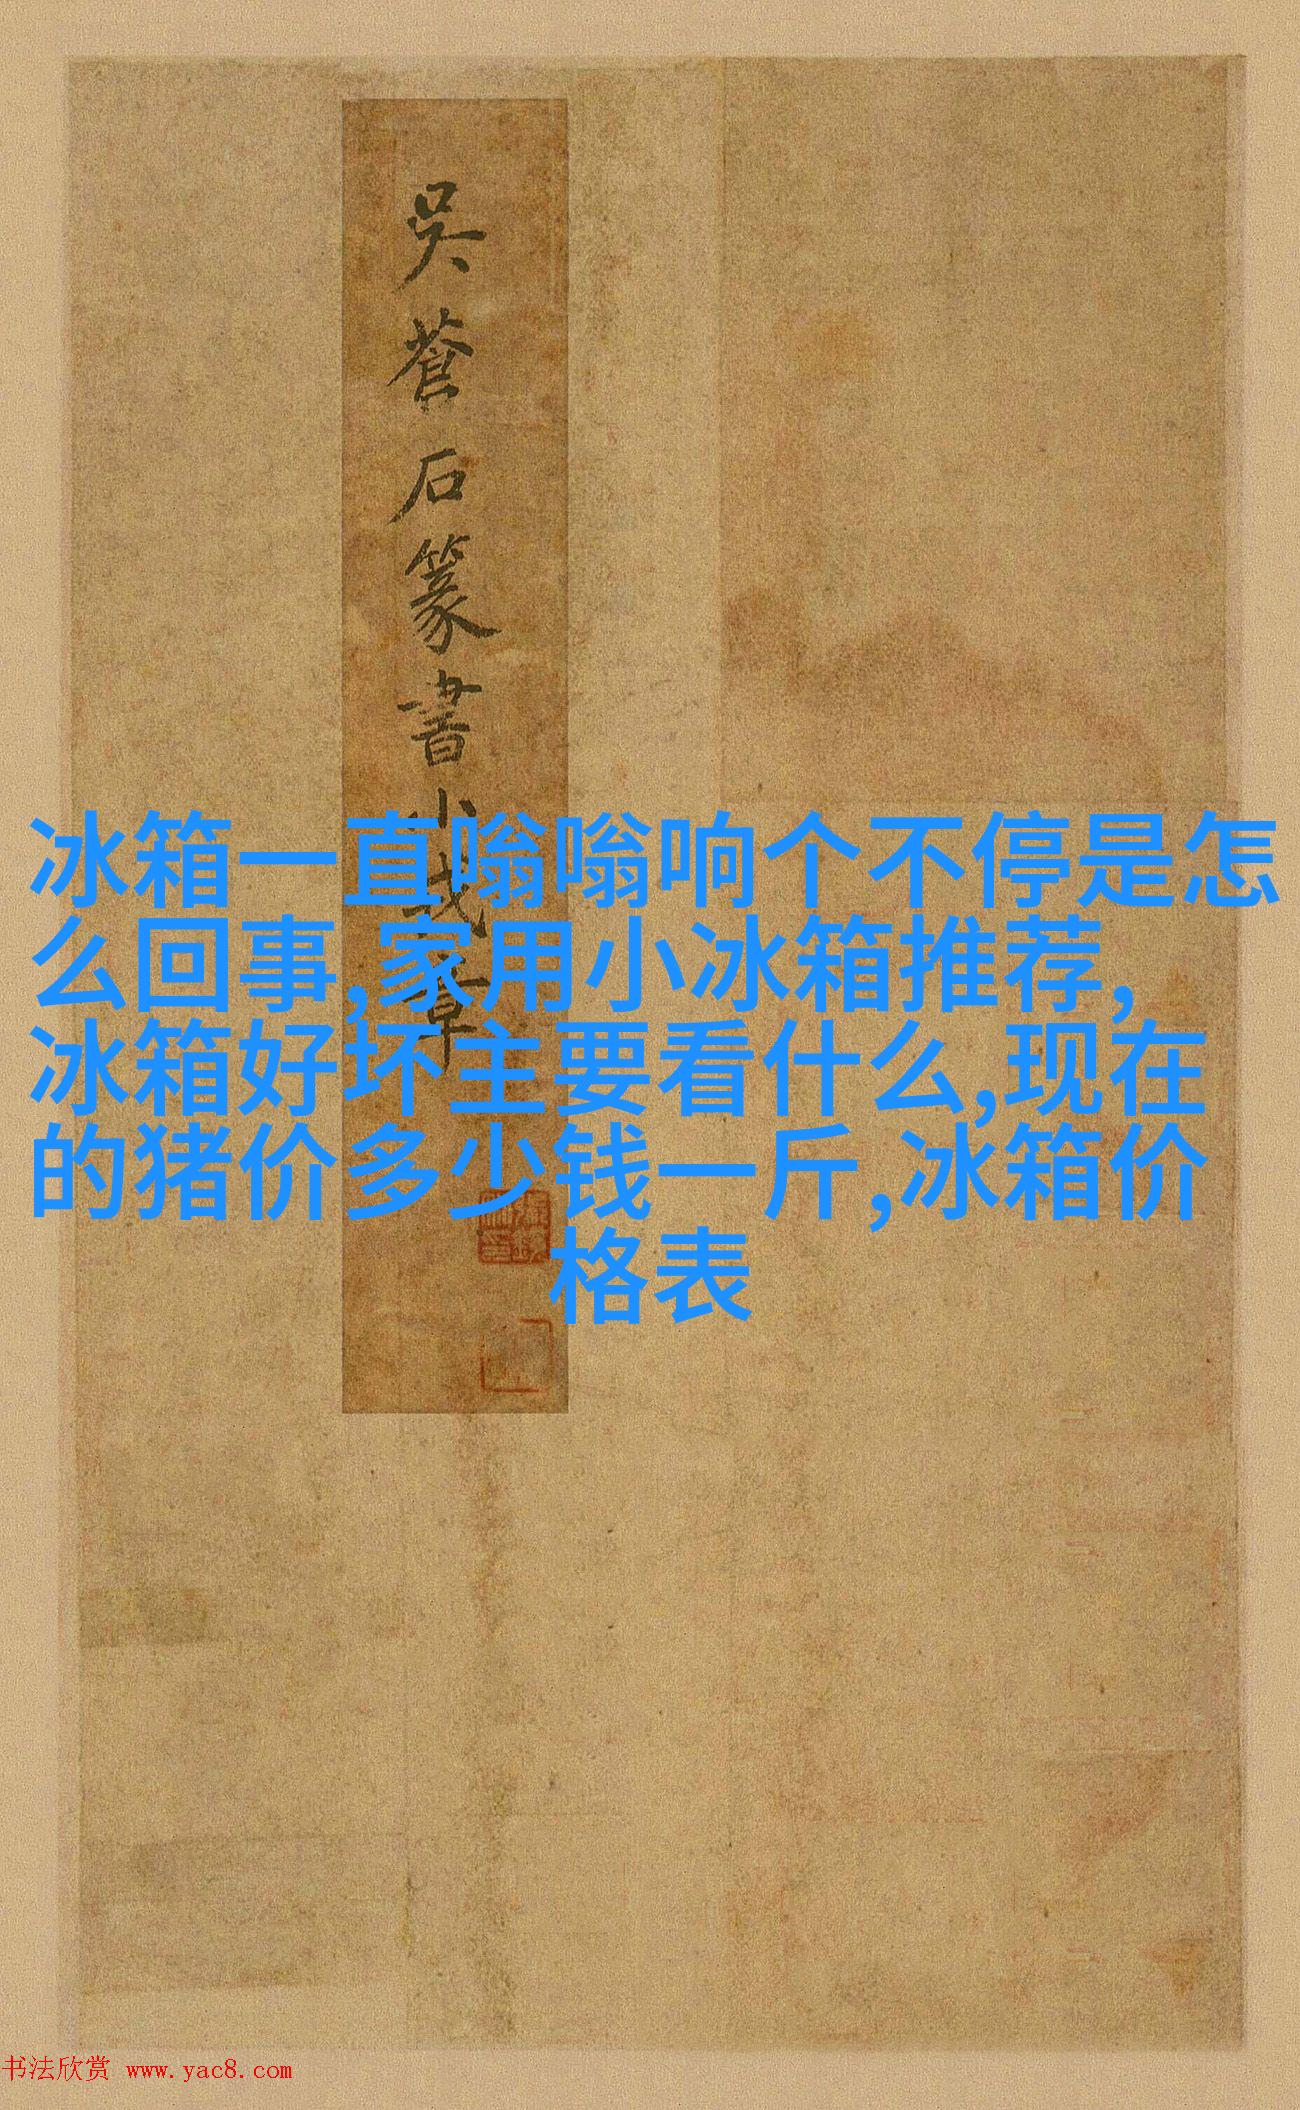 吳蒼石篆書小戔章
冰箱一直嗡嗡响个不停是怎
么回事,家用小冰箱推荐,
冰箱好坏主要看什么,现在
的猪价多少钱一斤,冰箱价
格表
书法欣赏 www.yac8.com